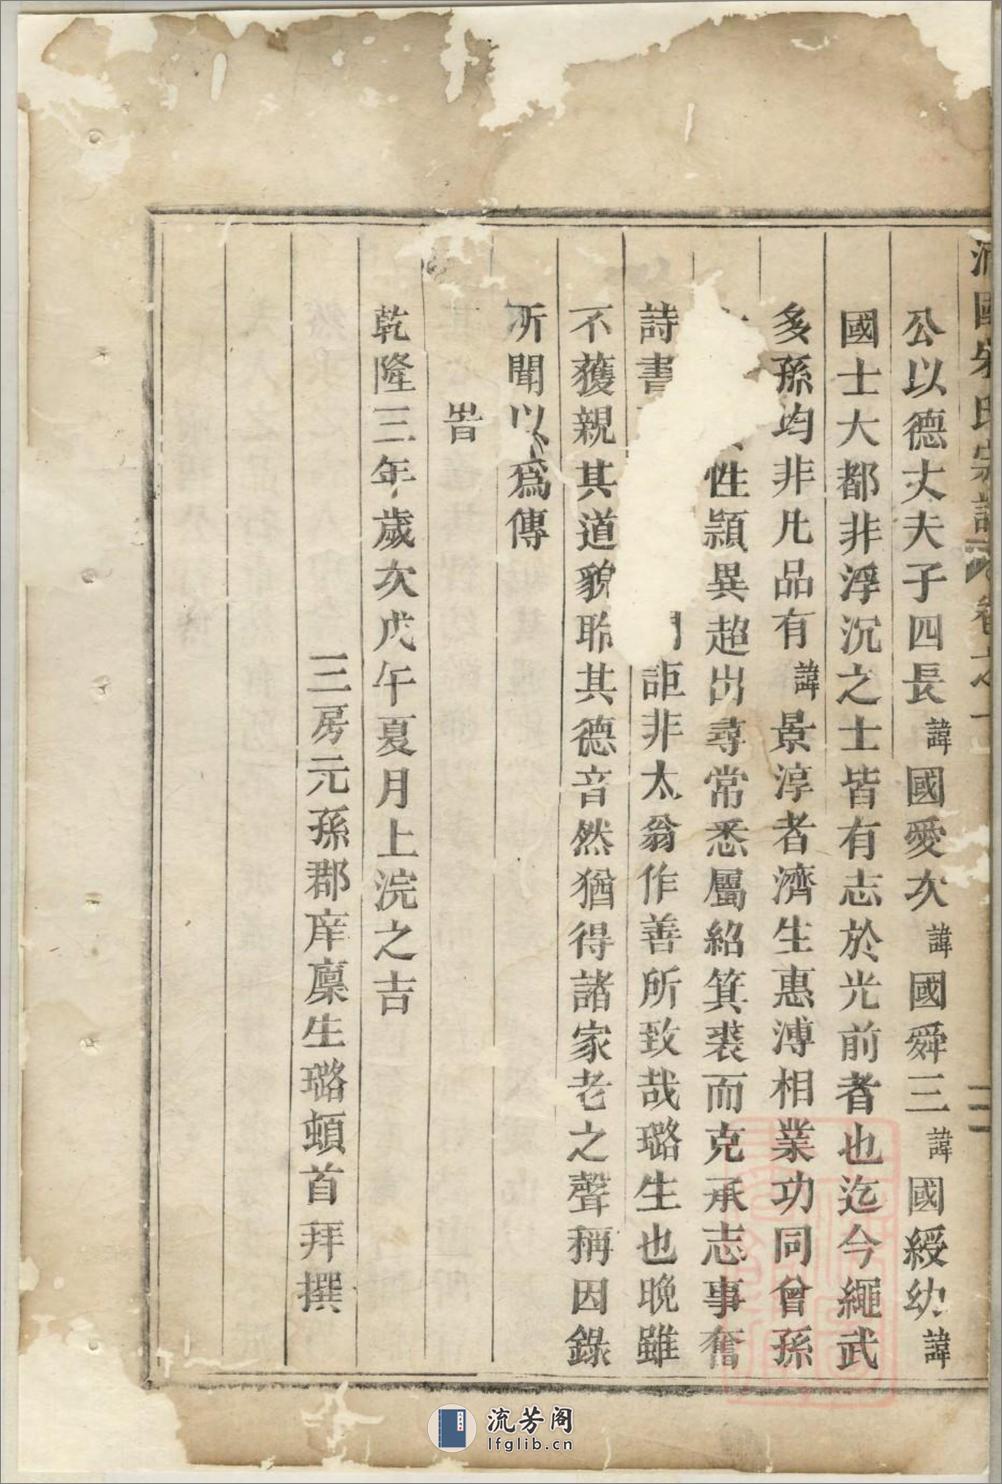 國宋氏宗譜 卷之一 二
公以德丈夫子四長諱國愛次諱國舜三諱國綬幼諱
國士大都非浮沉之士皆有志於光前者也迄今繩武
多孫均非凡品有諱景淳者濟生惠溥相業功同曾孫
性穎異超出尋常悉屬紹箕裘而克承志事奮
詩書詎非太翁作善所致哉璐生也晚雖
不獲親其道貌聆其德音然猶得諸家老之聲稱因錄
所聞以爲傳
旹
乾隆三年歲次戊午夏月上浣之吉
三房元孫郡庠廩生璐頓首拜撰
流芳阁
lfglib.cn